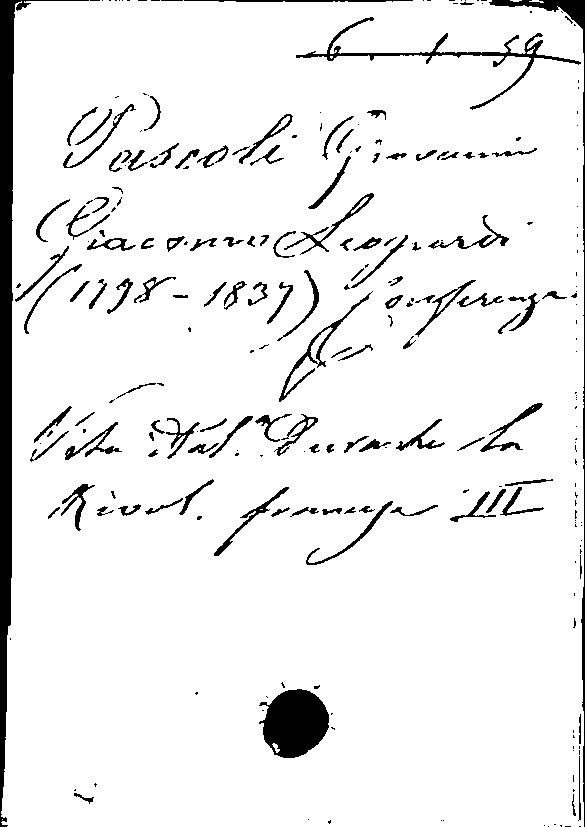 6. 1. 59
Pascoli Giovanni
Giacomo Leopardi
(1798-1837) Conferenza
In
Vita ital.ª Durante la
Rivol. francese III